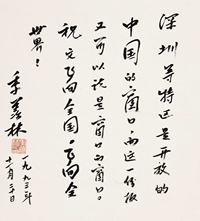 深圳等特区是开放的
中国的窗口,而这一份报
又可以说是窗口的窗口。
祝它飞向全国,飞向全
世界!
季羡林
一九九三年
十一月三十日